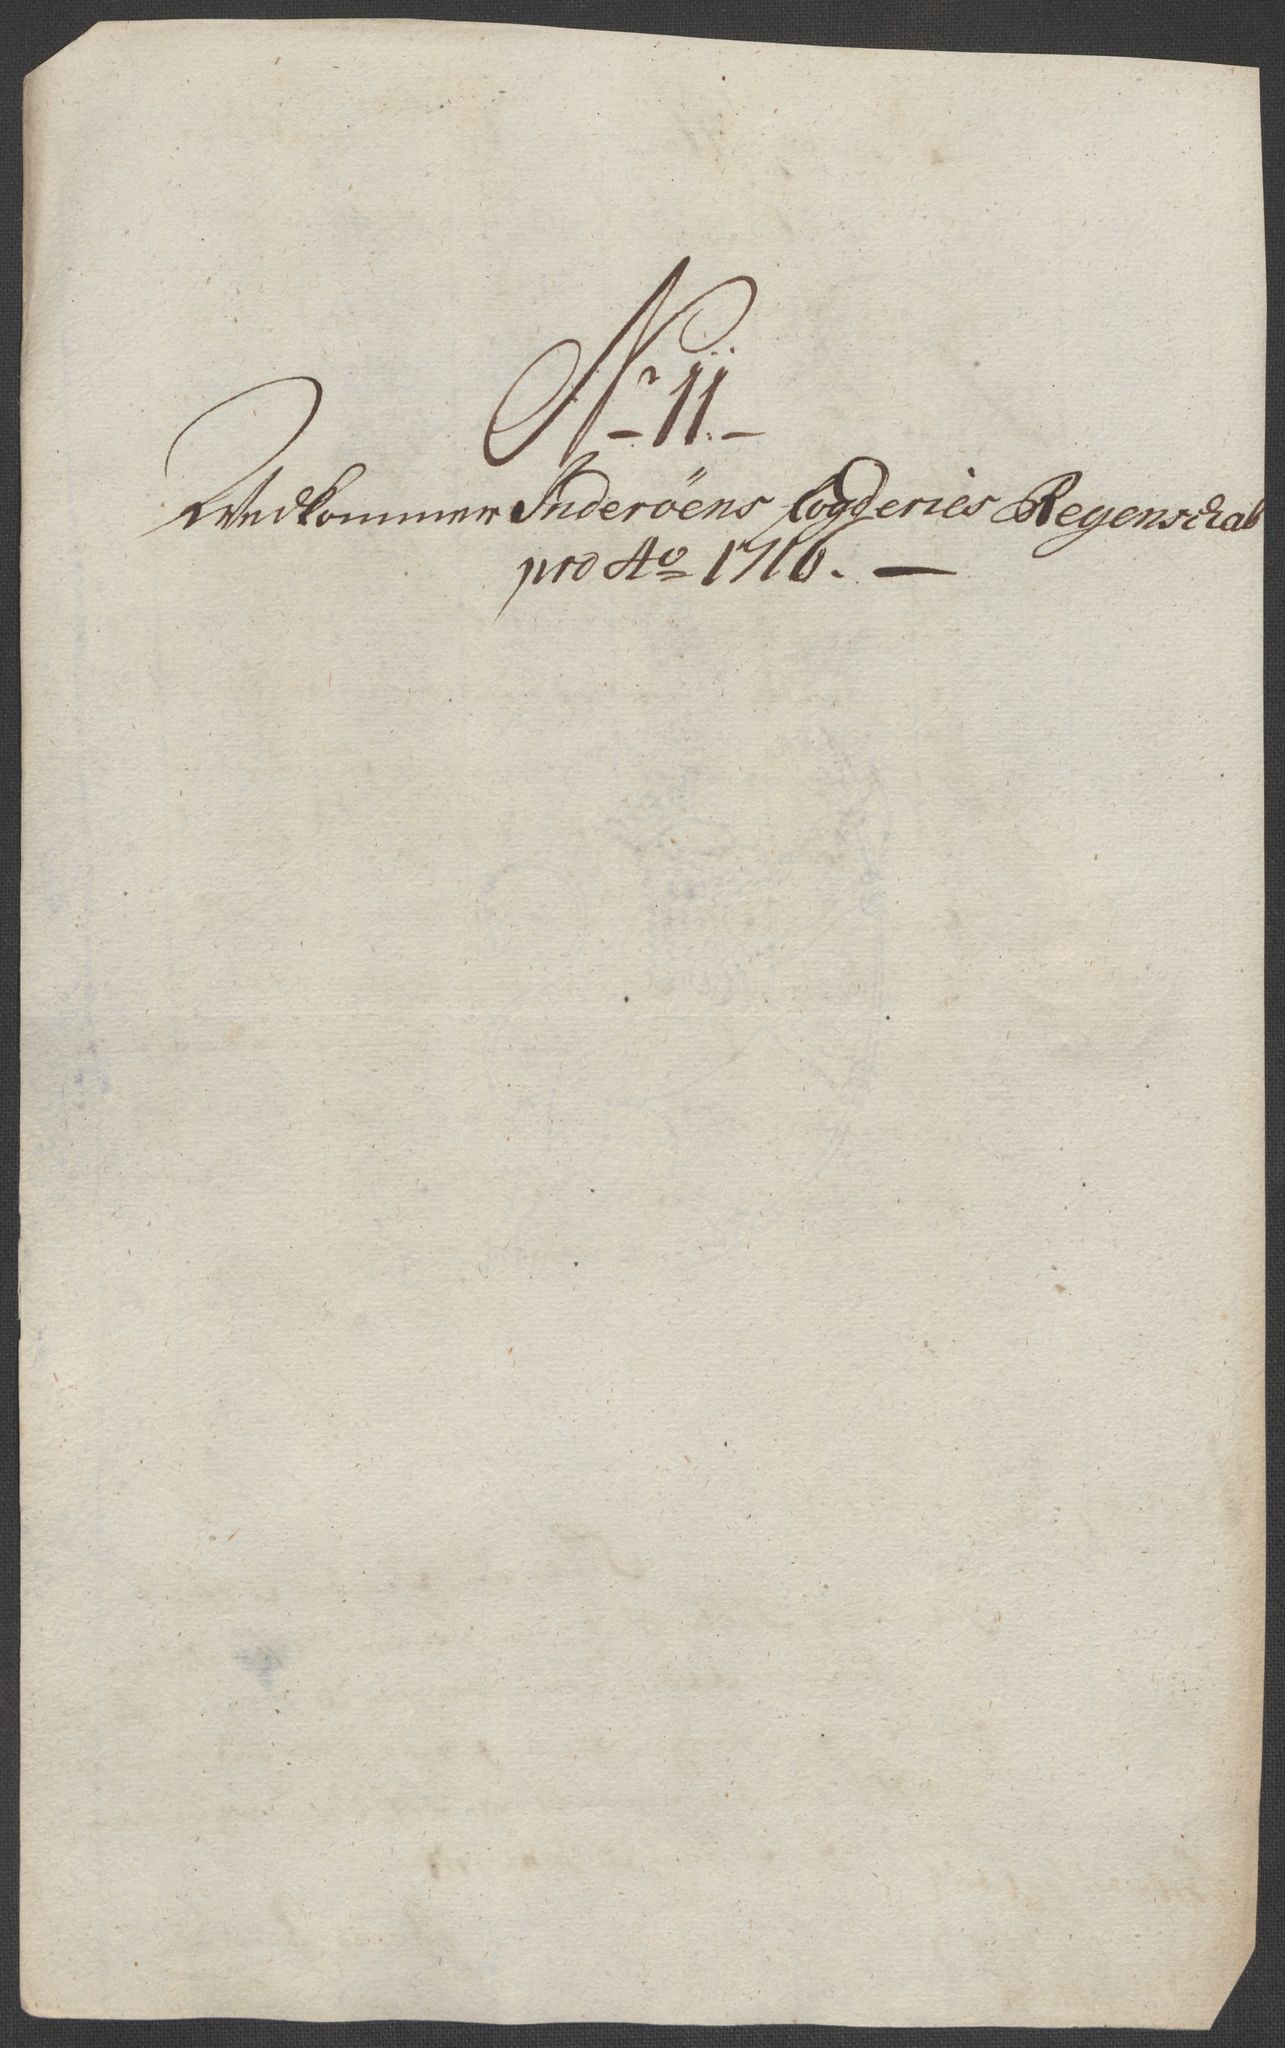 Nr 11.
Vedkommer Inderöens fogderies Regenschab
pro Ao 1716.